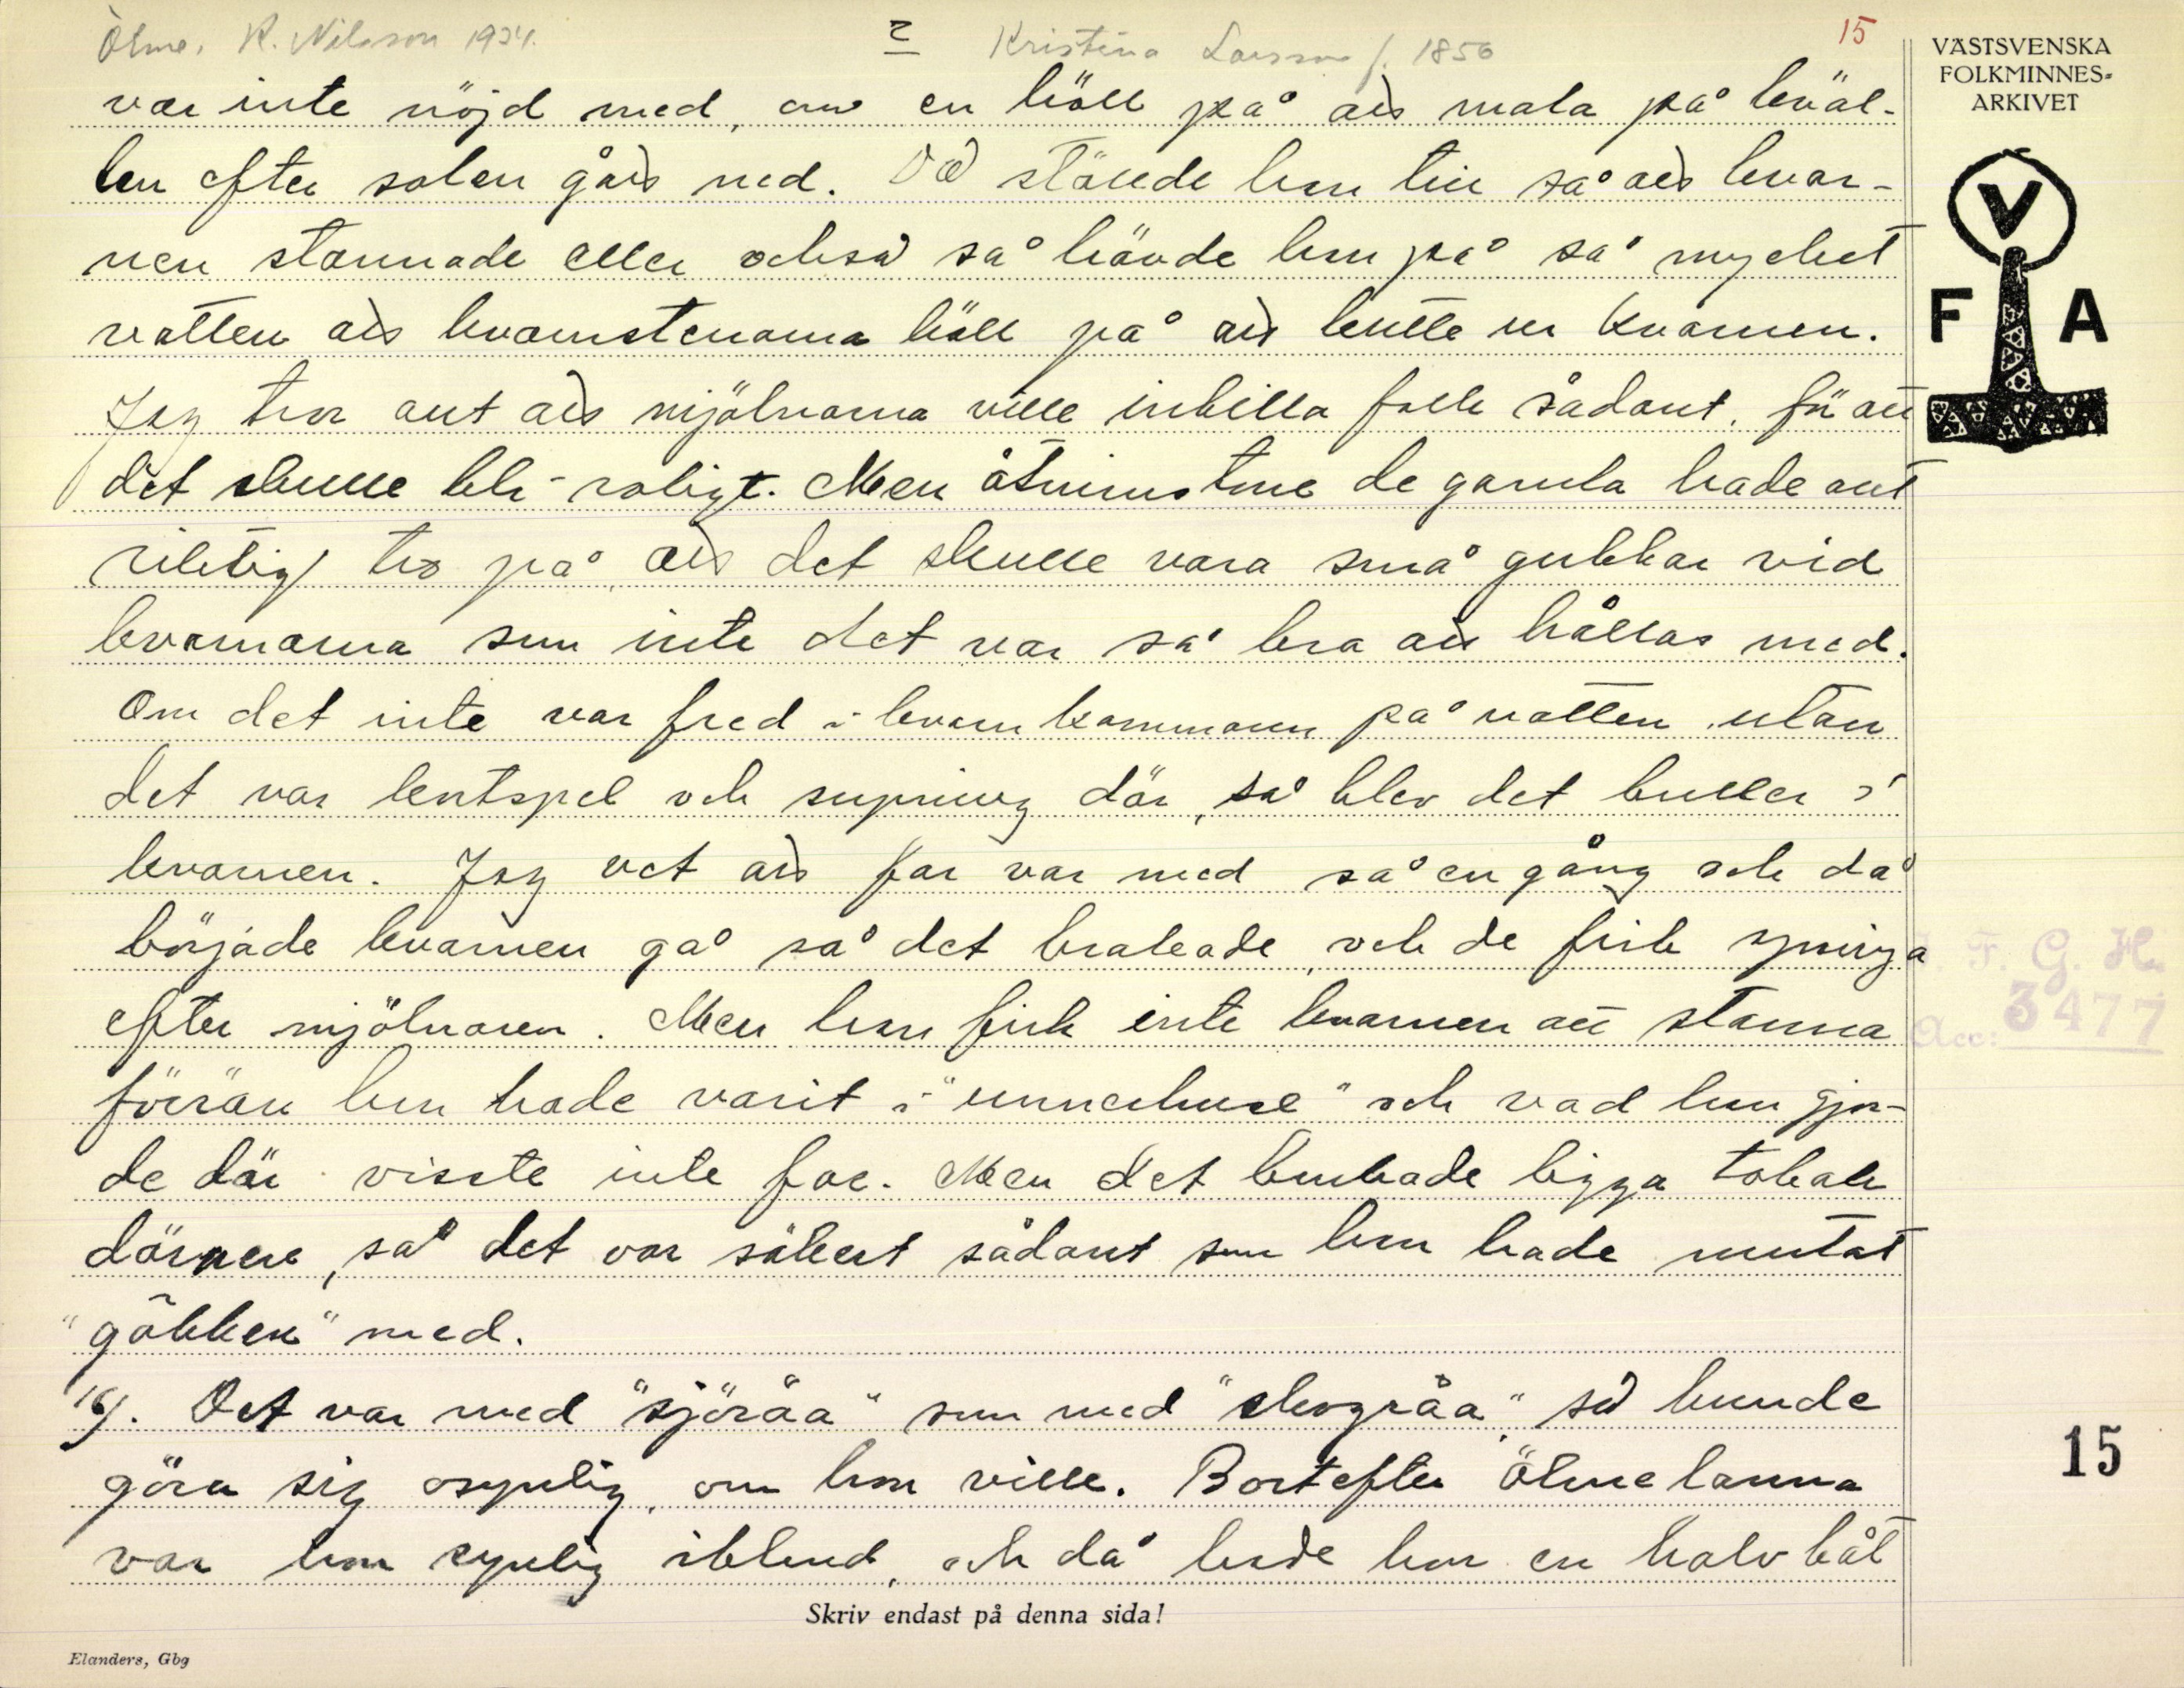 Ölme. R. Nilsson 1934.
2
Kristina Larsson f. 1850
15
VÄSTSVENSKA
FOLKMINNES-
ARKIVET
var inte nöjd med, om en höll på att mala på kväl-
len efter solen gått ned. Då ställde han till så att kvar-
nen stannade eller också så hävde han på så mycket
vatten att kvarnstenarna höll på att hutte ur kvarnen.
Jag tror ant att mjölnarna ville inbilla folk sådant, för att
det skulle bli roligt. Men åtminstone de gamla hade ant
riktig tro på, att det skulle vara små gubbar vid
kvarnarna som inte det var så bra att hållas med.
Om det inte var fred i kvarnkammaren på natten utan
det var kortspel och supning där, så blev det buller i
kvarnen. Jag vet att far var med så en gång och då
började kvarnen gå så det brakade, och de fick springa
efter mjölnaren. Men han fick inte kvarnen att stanna
förrän han hade varit i "unnerhuse" och vad han gjor-
de där visste inte far. Men det brukade ligga tobak
därnere, så det var säkert sådant som han hade mutat
"göbben" med.
16/. Det var med "sjöråa" som med "skogråa", så kunde
göra sig osynlig, om hon ville. Bortefter Ölmelanna
var hon synlig ibland, och då hade hon en halv båt
V
F A
F. G. H.
Acc: 3477
15
Skriv endast på denna sida!
Elanders, Gbg